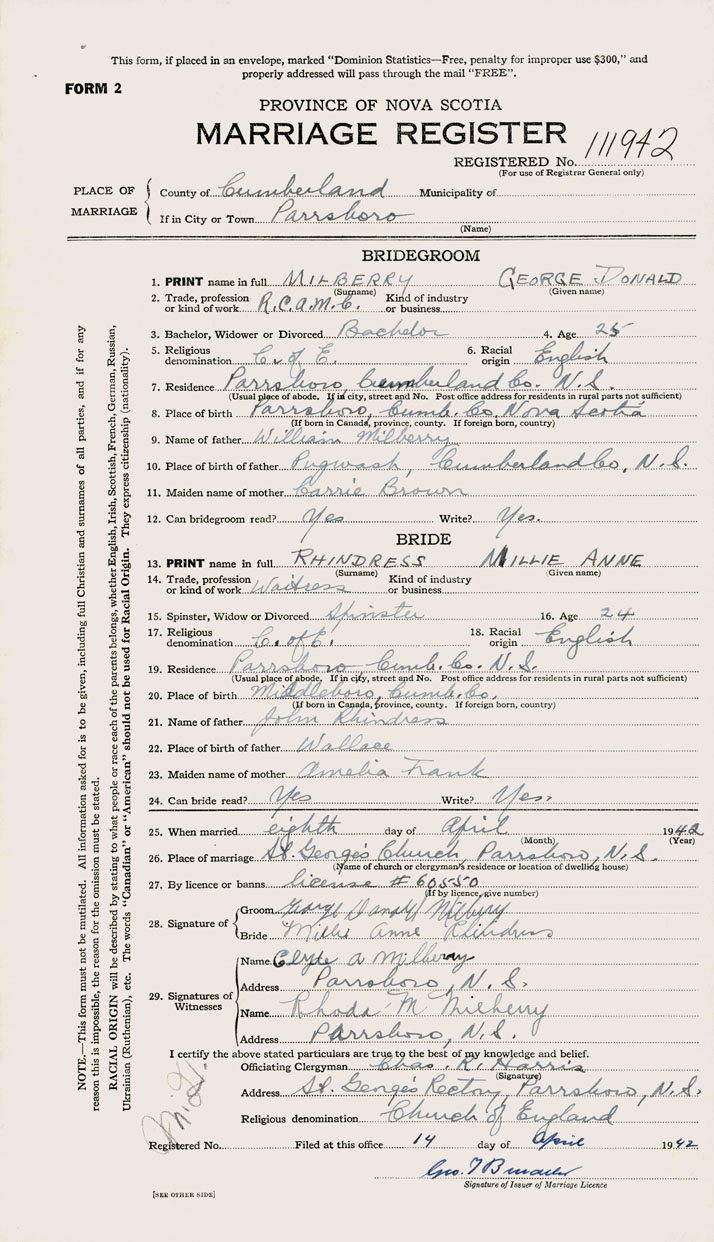 This form, if placed in an envelope, marked "Dominion Statistics—Free, penalty for improper use $300," and
properly addressed will pass through the mail "FREE".
FORM 2
PROVINCE OF NOVA SCOTIA
MARRIAGE REGISTER
REGISTERED No. 111942
(For use of Registrar General only)
PLACE OF MARRIAGE
County of Cumberland Municipality of
If in City or Town Parrsboro
(Name)
BRIDEGROOM
1. PRINT name in full MILBERRY GEORGE DONALD
(Surname) (Given name)
2. Trade, profession or kind of work R.C.A.M.C. Kind of industry or business
3. Bachelor, Widower or Divorced Bachelor 4. Age 25
5. Religious denomination C. of E. 6. Racial origin English
7. Residence Parrsboro, Cumberland Co. N.S.
(Usual place of abode. If in city, street and No. Post office address for residents in rural parts not sufficient)
8. Place of birth Parrsboro, Cumb. Co. Nova Scotia
(If born in Canada, province, county. If foreign born, country)
9. Name of father William Milberry
10. Place of birth of father Pugwash, Cumberland Co, N.S.
11. Maiden name of mother Carrie Brown
12. Can bridegroom read? Yes Write? Yes.
BRIDE
13. PRINT name in full RHINDRESS MILLIE ANNE
(Surname) (Given name)
14. Trade, profession or kind of work Waitress Kind of industry or business
15. Spinster, Widow or Divorced Spinster 16. Age 24
17. Religious denomination C. of E. 18. Racial origin English
19. Residence Parrsboro Cumb. Co. N.S.
(Usual place of abode. If in city, street and No. Post office address for residents in rural parts not sufficient)
20. Place of birth Middleboro, Cumb. Co.
(If born in Canada, province, county. If foreign born, country)
21. Name of father John Rhindress
22. Place of birth of father Wallace
23. Maiden name of mother Amelia Frank
24. Can bride read? Yes Write? Yes.
25. When married eighth day of April 1942
(Month) (Year)
26. Place of marriage St. George's Church, Parrsboro, N.S.
(Name of church or clergyman's residence or location of dwelling house)
27. By licence or banns license # 60550
(If by licence, give number)
28. Signature of
Groom George Donald Milberry
Bride Millie Anne Rhindress
29. Signatures of Witnesses
Name Clyde A Milberry
Address Parrsboro, N.S.
Name Rhoda M Milberry
Address Parrsboro, N.S.
I certify the above stated particulars are true to the best of my knowledge and belief.
Officiating Clergyman Chas. R. Harris
(Signature)
Address St. George's Rectory, Parrsboro, N.S.
Religious denomination Church of England
Registered No. Filed at this office 14 day of April 1942
Geo. T
Signature of Issuer of Marriage Licence
[SEE OTHER SIDE]
NOTE.—This form must not be mutilated. All information asked for is to be given, including full Christian and surnames of all parties, and if for any
reason this is impossible, the reason for the omission must be stated.
RACIAL ORIGIN will be described by stating to what people or race each of the parents belongs, whether English, Irish, Scottish, French, German, Russian,
Ukrainian (Ruthenian), etc. The words "Canadian" or "American" should not be used for Racial Origin. They express citizenship (nationality).